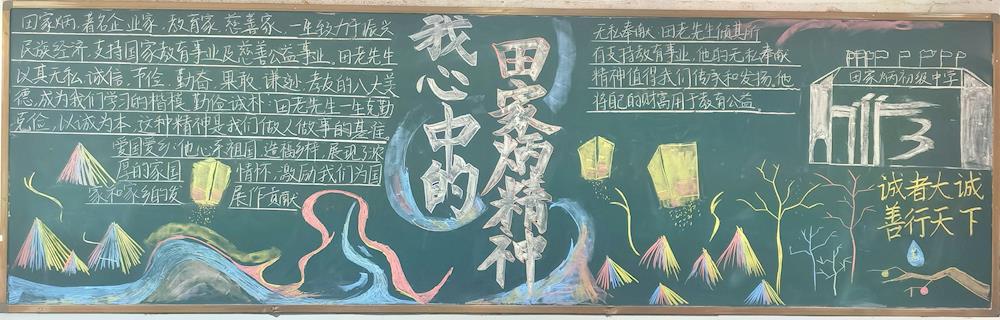 田家炳,著名企业家,教育家,慈善家,一生致力于振兴
民族经济,支持国家教育事业及慈善公益事业,田老先生
以其无私,诚信,节俭,勤奋,果敢,谦逊,孝友的八大美
德,成为我们学习的楷模,勤俭诚朴:田老先生一生克勤
克俭,以诚为本,这种精神是我们做人做事的基准
爱国爱乡:他心系祖国,造福乡梓,展现了深
厚的家国情怀,激励我们为国
家和家乡的发展作贡献
我心中的
田家炳精神
无私奉献:田老先生倾其所
有支持教育事业,他的无私奉献
精神值得我们传承和发扬,他
将自己的财富用于教育公益。
田家炳初级中学
诚者大诚
善行天下